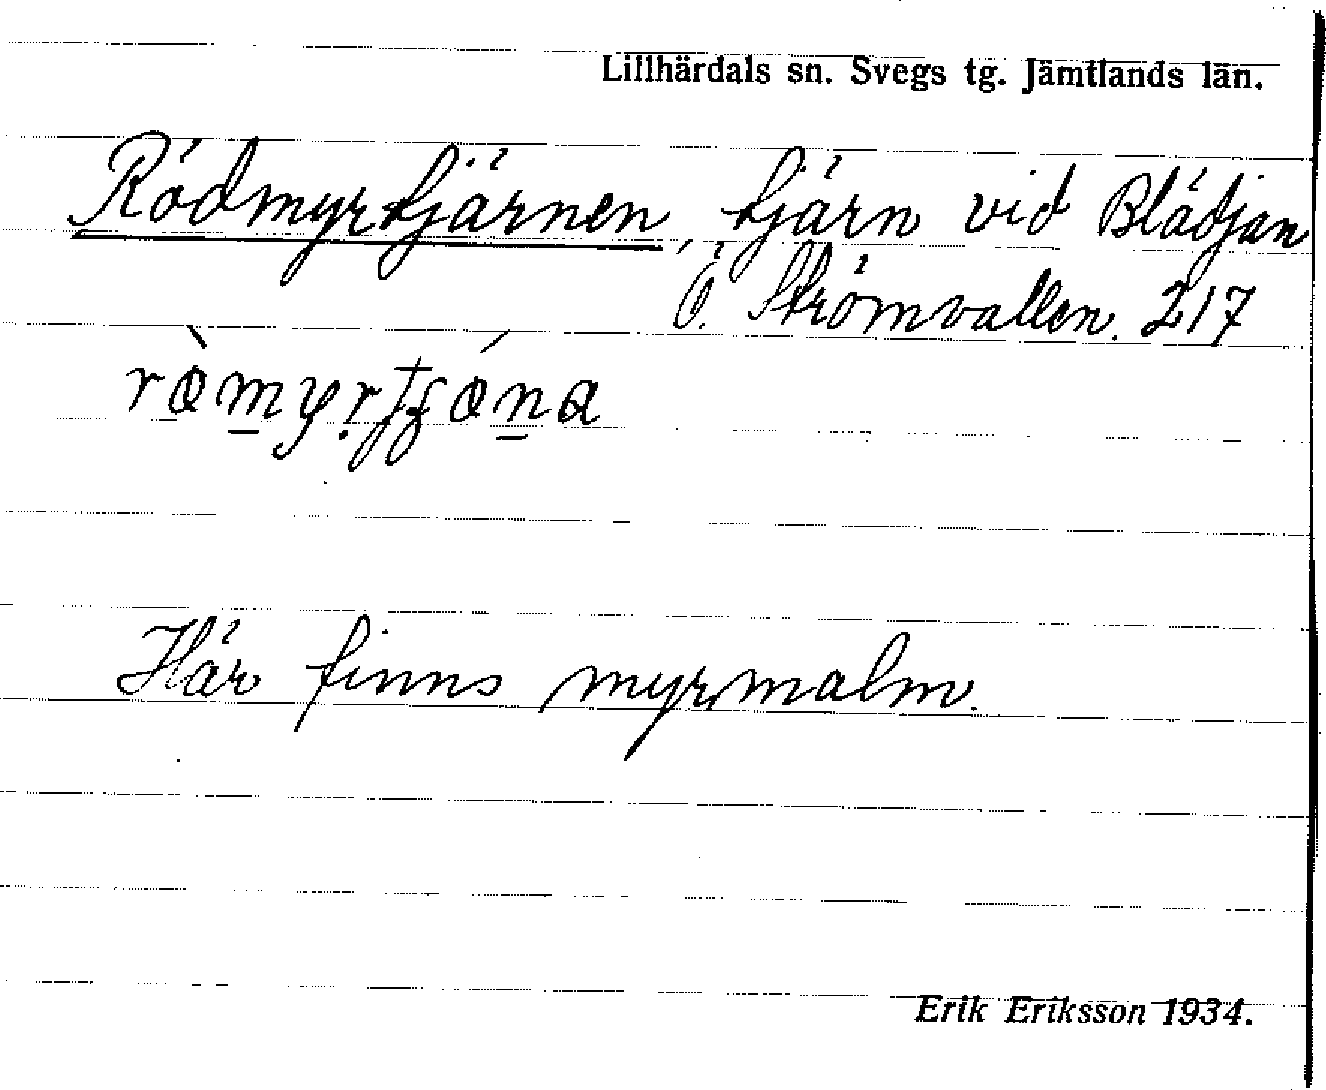 Lillhärdals sn. Svegs tg. Jämtlands län.
Rödmyrtjärnen, tjärn vid Blädjan
Ö. Strömvallen. 217
Här finns myrmalm.
Erik Eriksson 1934.